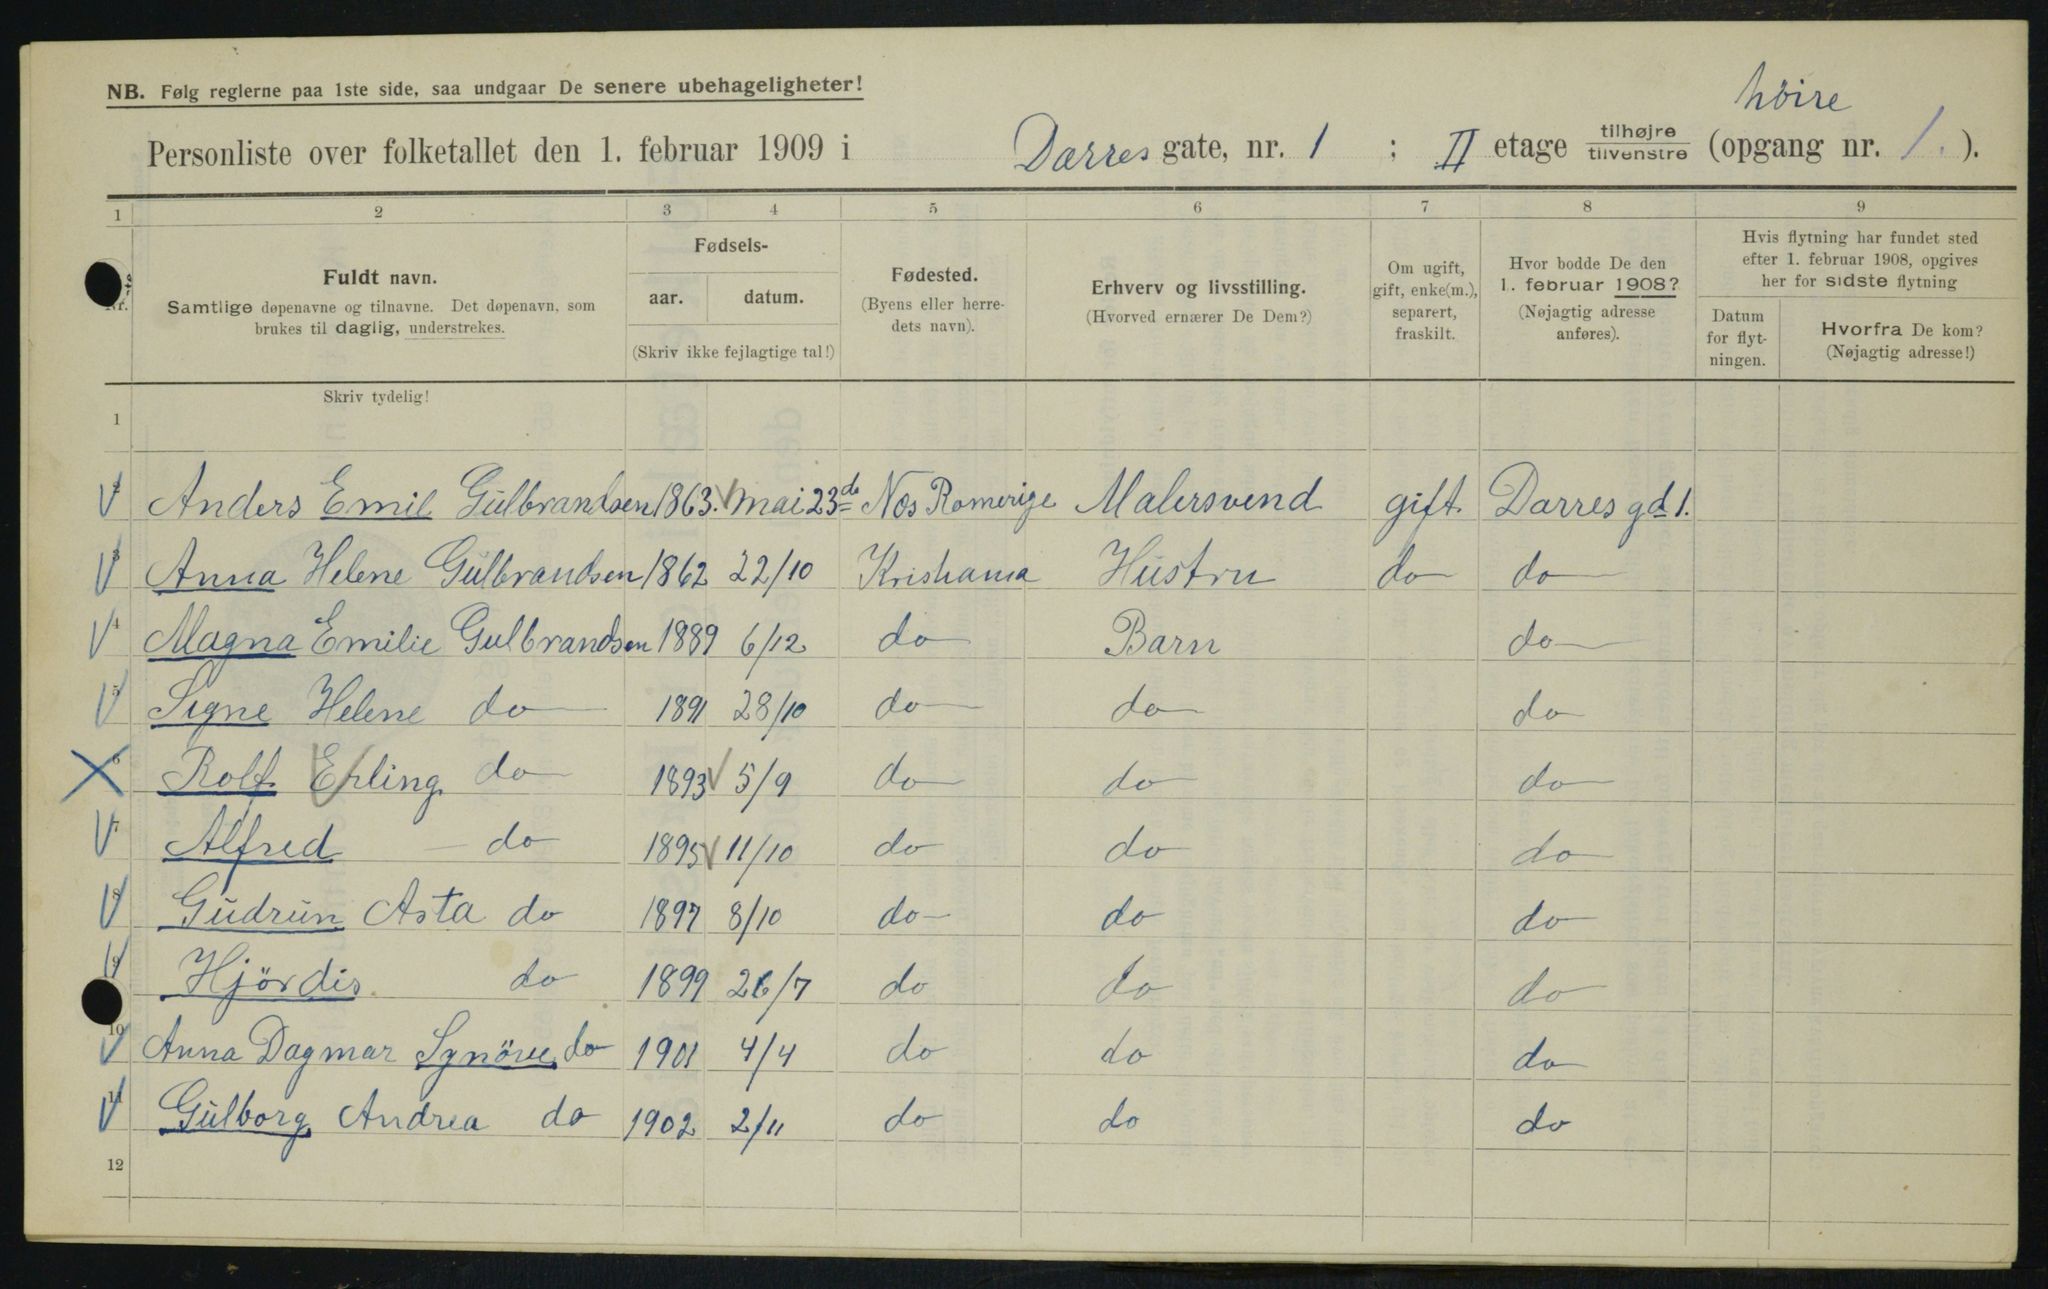 NB. Følg reglerne paa 1ste side, saa undgaar De senere ubehageligheter!
høire
Personliste over folketallet den 1. februar 1909 i Darres gate, nr. 1 ; II etage tilhøjre/tilvenstre (opgang nr. 1. ).
1 2 3 4 5 6 7 8 9
Nr.
Fuldt navn.
Samtlige døpenavne og tilnavne. Det døpenavn, som
brukes til daglig, understrekes.
Fødsels-
aar. datum.
(Skriv ikke fejlagtige tal!)
Fødested.
(Byens eller herre-
dets navn).
Erhverv og livsstilling.
(Hvorved ernærer De Dem?)
Om ugift,
gift, enke(m.),
separert,
fraskilt.
Hvor bodde De den
1. februar 1908?
(Nøjagtig adresse
anføres).
Hvis flytning har fundet sted
efter 1. februar 1908, opgives
her for sidste flytning
Datum
for flyt-
ningen.
Hvorfra De kom?
(Nøjagtig adresse!)
Skriv tydelig!
1
2 Anders Emil Gulbrandsen 1863. Mai 23de Nes Romerige Malersvend gift Darres gd 1.
3 Anna Helene Gulbrandsen 1862 22/10 Kristiania Hustru do do
4 Magna Emilie Gulbrandsen 1889 6/12 do Barn do
5 Signe Helene do 1891 28/10 do do do
6 Rolf Erling do 1893 5/9 do do do
7 Alfred do 1895 11/10 do do do
8 Gudrun Asta do 1897 8/10 do do do
9 Hjördis do 1899 26/7 do do do
10 Anna Dagmar Synöve do 1901 4/4 do do do
11 Gulborg Andrea do 1902 2/11 do do do
12